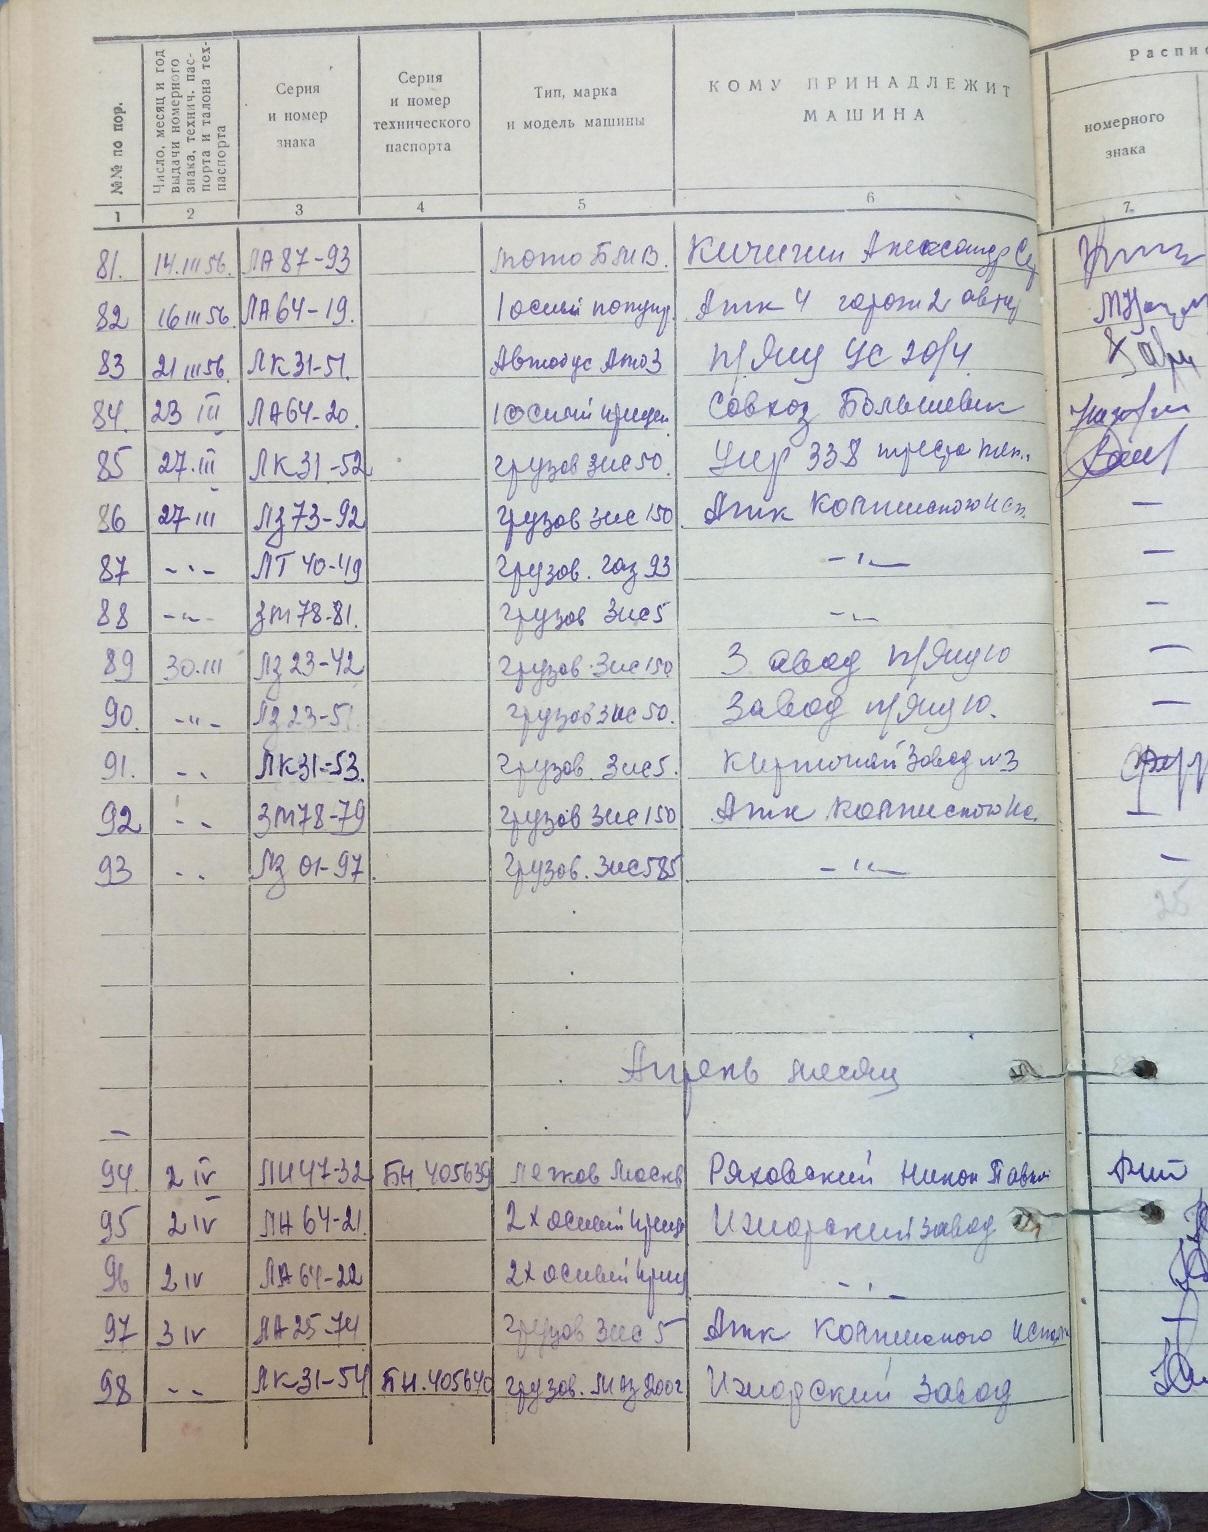 №№ по пор.
Число, месяц и год
выдачи номерного
знака, технич. пас-
порта и талона тех-
паспорта
Серия
и номер
знака
Серия
и номер
технического
паспорта
Тип, марка
и модель машины
КОМУ ПРИНАДЛЕЖИТ
МАШИНА
Распис
номерного
знака
1 2 3 4 5 6 7
81. 14.III 56. ЛА 87-93 мото БМВ. Кичигин Александр
82 16 III 56. ЛА 64-19. 1 осный Атк 4 гараж 2
83 21 III 56. ЛК 31-51. Автобус
84. 23 III ЛА 64-20. 1 осный Совхоз Большевик
85 27.III ЛК 31-52 грузов Зис 50. 338 треста
86 27 III ЛЗ 73-92 грузов Зис 150 Атк Колпинского
87 -"- ЛТ 40-49 грузов. Газ 93 -"-
88 -"- ЗМ 78-81. грузов Зис 5 -"-
89 30.III ЛЗ 23-42 грузов. Зис 150 Завод
90. -"- ЛЗ 23-51 грузов Зис 50. Завод
91. -"- ЛК 31-53. грузов. Зис 5. Кирпичный Завод №3
92 -"- ЗМ 78-79 грузов Зис 150 Атк Колпинского
93 -"- ЛЗ 01-97 грузов. Зис 585 -"-
25
Апрель месяц
94. 2 IV 47-32 БН. 405639 легков Москв Ряховский Никон Павл
95 2 IV 64-21 2х осный Ижорский завод
96 2 IV ЛА 64-22 2х осный -"-
97 3 IV ЛА 25-74 грузов Зис 5 Атк Колпинского
98 -"- ЛК 31-54 БН. 405640 грузов. МАЗ 200г Ижорский Завод